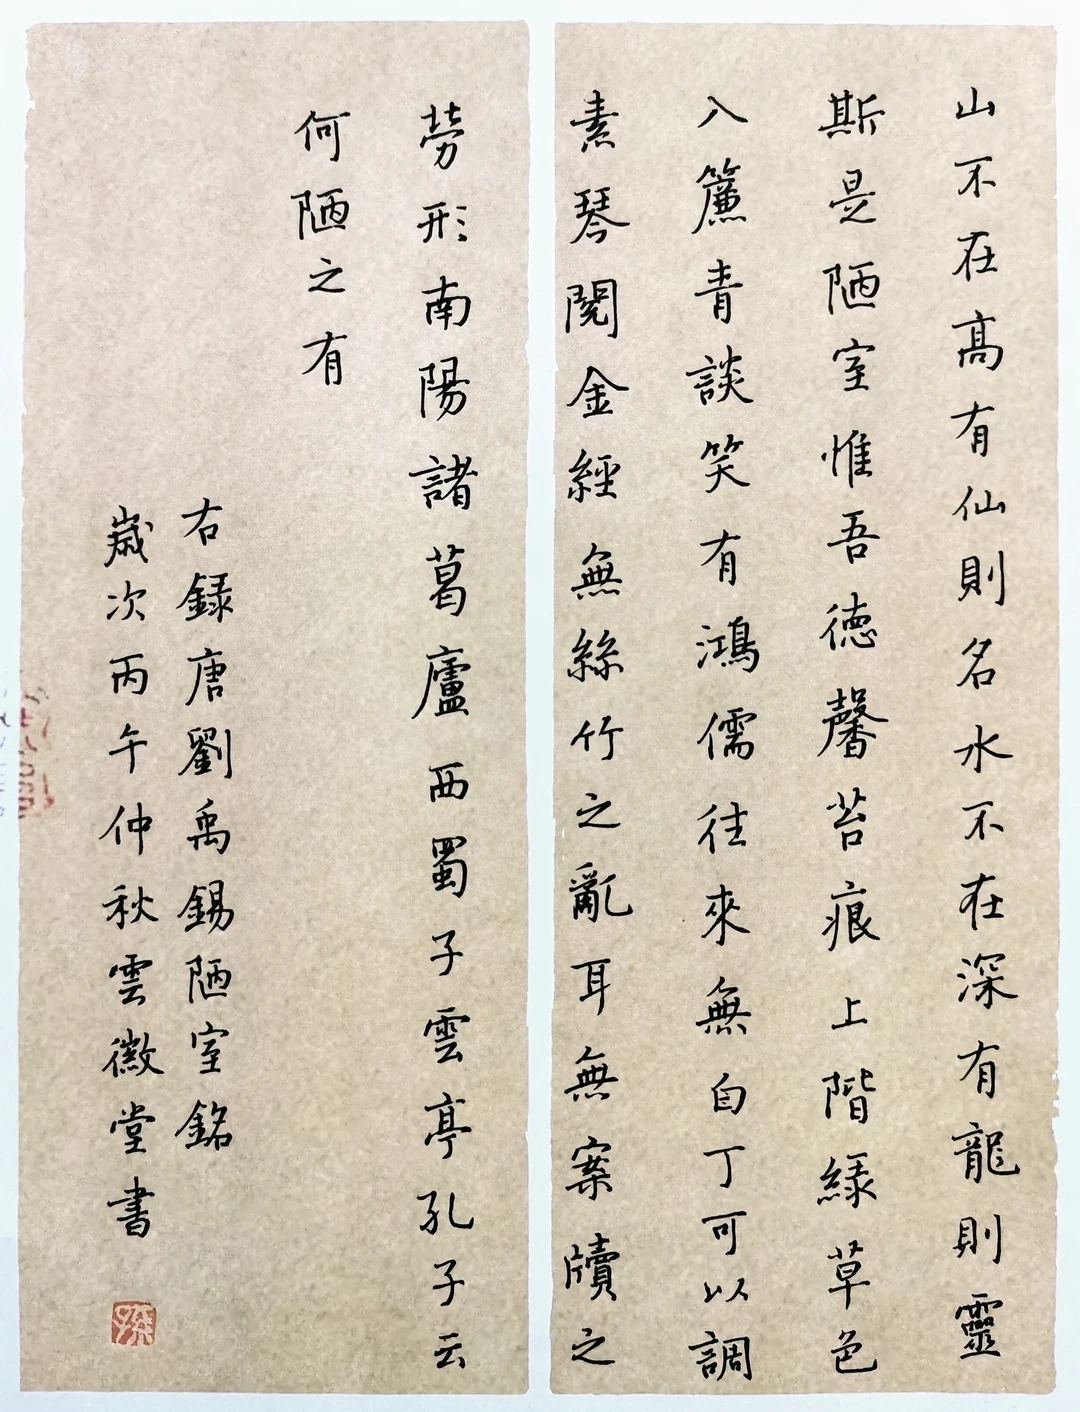 山不在高有仙則名水不在深有龍則靈
斯是陋室惟吾德馨苔痕上階緑草色
入簾青談笑有鴻儒往來無白丁可以調
素琴閱金經無絲竹之亂耳無案牘之
勞形南陽諸葛廬西蜀子雲亭孔子云
何陋之有
右録唐劉禹錫陋室銘
歲次丙午仲秋雲徽堂書